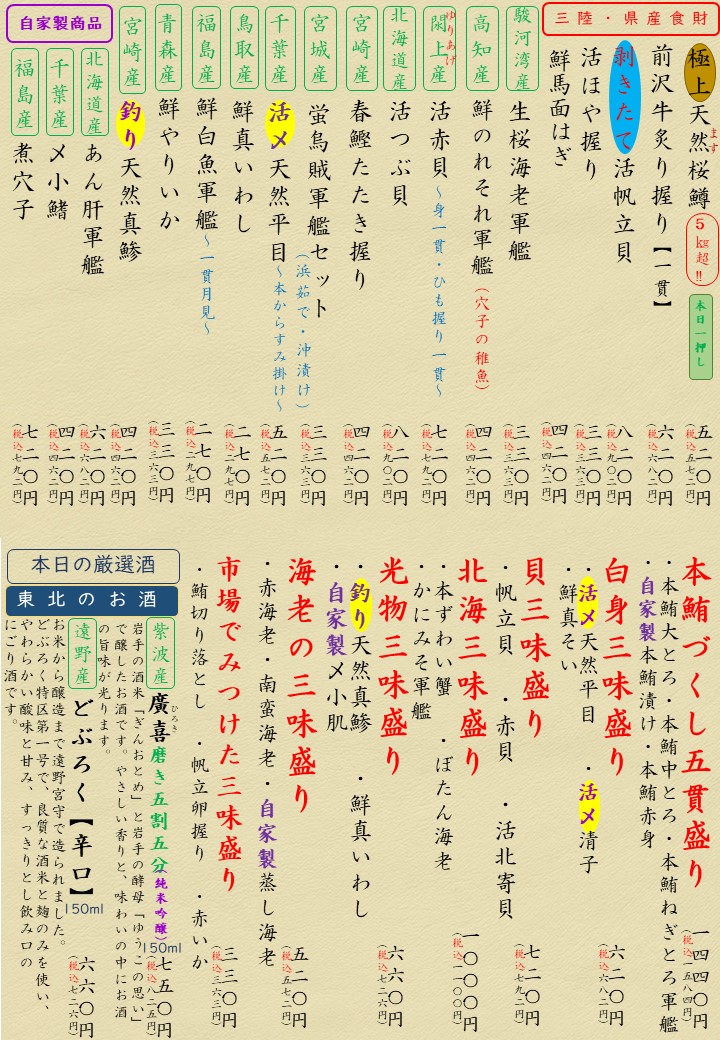 三陸・県産食財
極上天然桜鱒
ます
5㎏超!!
本日一押し
五二〇円
(税込五七二円)
前沢牛炙り握り【一貫】
六二〇円
(税込六八二円)
剥きたて活帆立貝
八二〇円
(税込九〇二円)
活ほや握り
三三〇円
(税込三六三円)
鮮馬面はぎ
四二〇円
(税込四六二円)
駿河湾産
生桜海老軍艦
三三〇円
(税込三六三円)
高知産
鮮のれそれ軍艦(穴子の稚魚)
四二〇円
(税込四六二円)
閖上産
ゆりあげ
活赤貝～身一貫・ひも握り一貫～
七二〇円
(税込七九二円)
北海道産
活つぶ貝
八二〇円
(税込九〇二円)
宮崎産
春鰹たたき握り
四二〇円
(税込四六二円)
宮城産
蛍烏賊軍艦セット
(浜茹で・沖漬け)
三三〇円
(税込三六三円)
千葉産
活〆天然平目～本からすみ掛け～
五二〇円
(税込五七二円)
鳥取産
鮮真いわし
二七〇円
(税込二九七円)
福島産
鮮白魚軍艦～一貫月見～
二七〇円
(税込二九七円)
青森産
鮮やりいか
三三〇円
(税込三六三円)
宮崎産
釣り天然真鯵
四二〇円
(税込四六二円)
自家製商品
北海道産
あん肝軍艦
六二〇円
(税込六八二円)
千葉産
〆小鰭
四二〇円
(税込四六二円)
福島産
煮穴子
七二〇円
(税込七九二円)
本鮪づくし五貫盛り
・本鮪大とろ・本鮪中とろ・本鮪ねぎとろ軍艦
・自家製本鮪漬け・本鮪赤身
一四四〇円
(税込一五八四円)
白身三味盛り
・活〆天然平目 ・活〆清子
・鮮真そい
六二〇円
(税込六八二円)
貝三味盛り
・帆立貝 ・赤貝 ・活北寄貝
七二〇円
(税込七九二円)
北海三味盛り
・本ずわい蟹 ・ぼたん海老
・かにみそ軍艦
一〇〇〇円
(税込一一〇〇円)
光物三味盛り
・釣り天然真鯵 ・鮮真いわし
・自家製〆小肌
六六〇円
(税込七二六円)
海老の三味盛り
・赤海老・南蛮海老・自家製蒸し海老
五二〇円
(税込五七二円)
市場でみつけた三味盛り
・鮪切り落とし ・帆立卵握り ・赤いか
三三〇円
(税込三六三円)
本日の厳選酒
東北のお酒
紫波産
廣喜磨き五割五分(純米吟醸)
ひろき
150ml
七五〇円
(税込八二五円)
岩手の酒米「ぎんおとめ」と岩手の酵母「ゆうこの思い」
で醸したお酒です。やさしい香りと、味わいの中にお酒
の旨味が光ります。
遠野産
どぶろく【辛口】
150ml
六六〇円
(税込七二六円)
お米から醸造まで遠野宮守で造られました。
どぶろく特区第一号で、良質な酒米と麹のみを使い、
やわらかい酸味と甘み、すっきりとし飲み口の
にごり酒です。